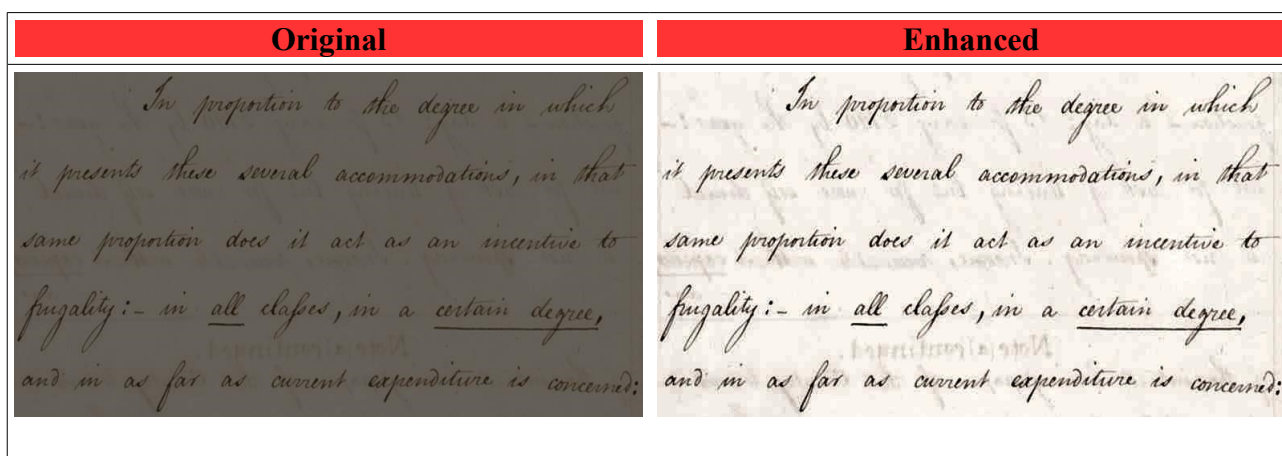 Original
Enhanced
In proportion to the degree in which
it presents these several accommodations, in that
same proportion does it act as an incentive to
frugality:- in all claſses, in a certain degree,
Note (a) continued.
and in as far as current expenditure is concerned:
In proportion to the degree in which
it presents these several accommodations, in that
same proportion does it act as an incentive to
frugality:- in all claſses, in a certain degree,
Note (a) continued.
and in as far as current expenditure is concerned: